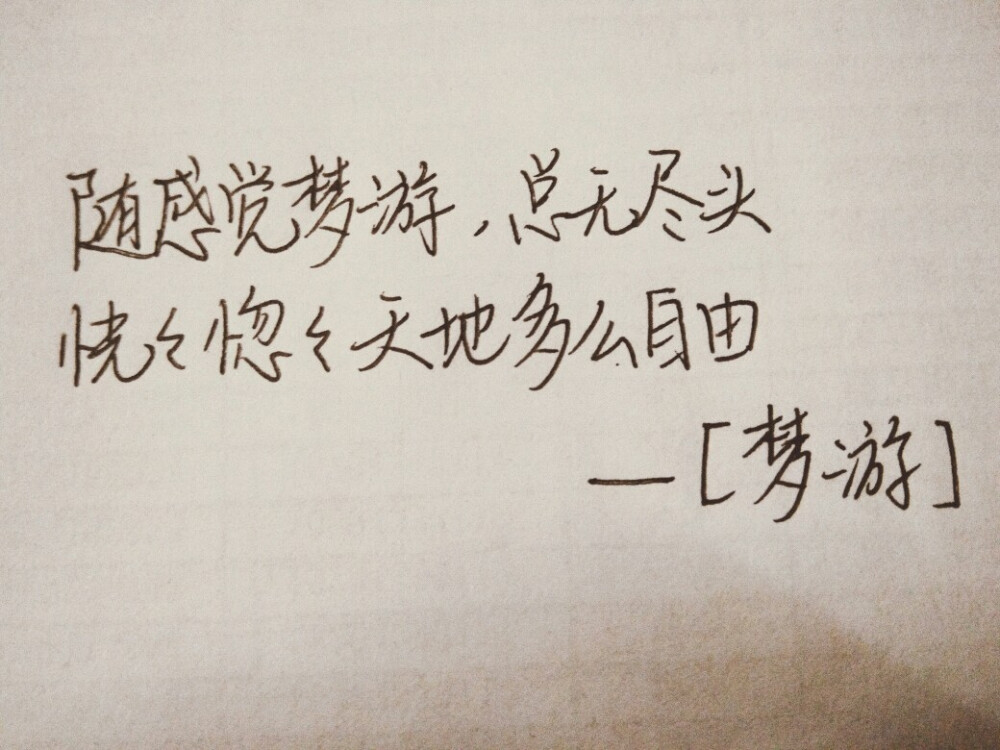 随感觉梦游，总无尽头
恍々惚々天地多么自由
—[梦游]